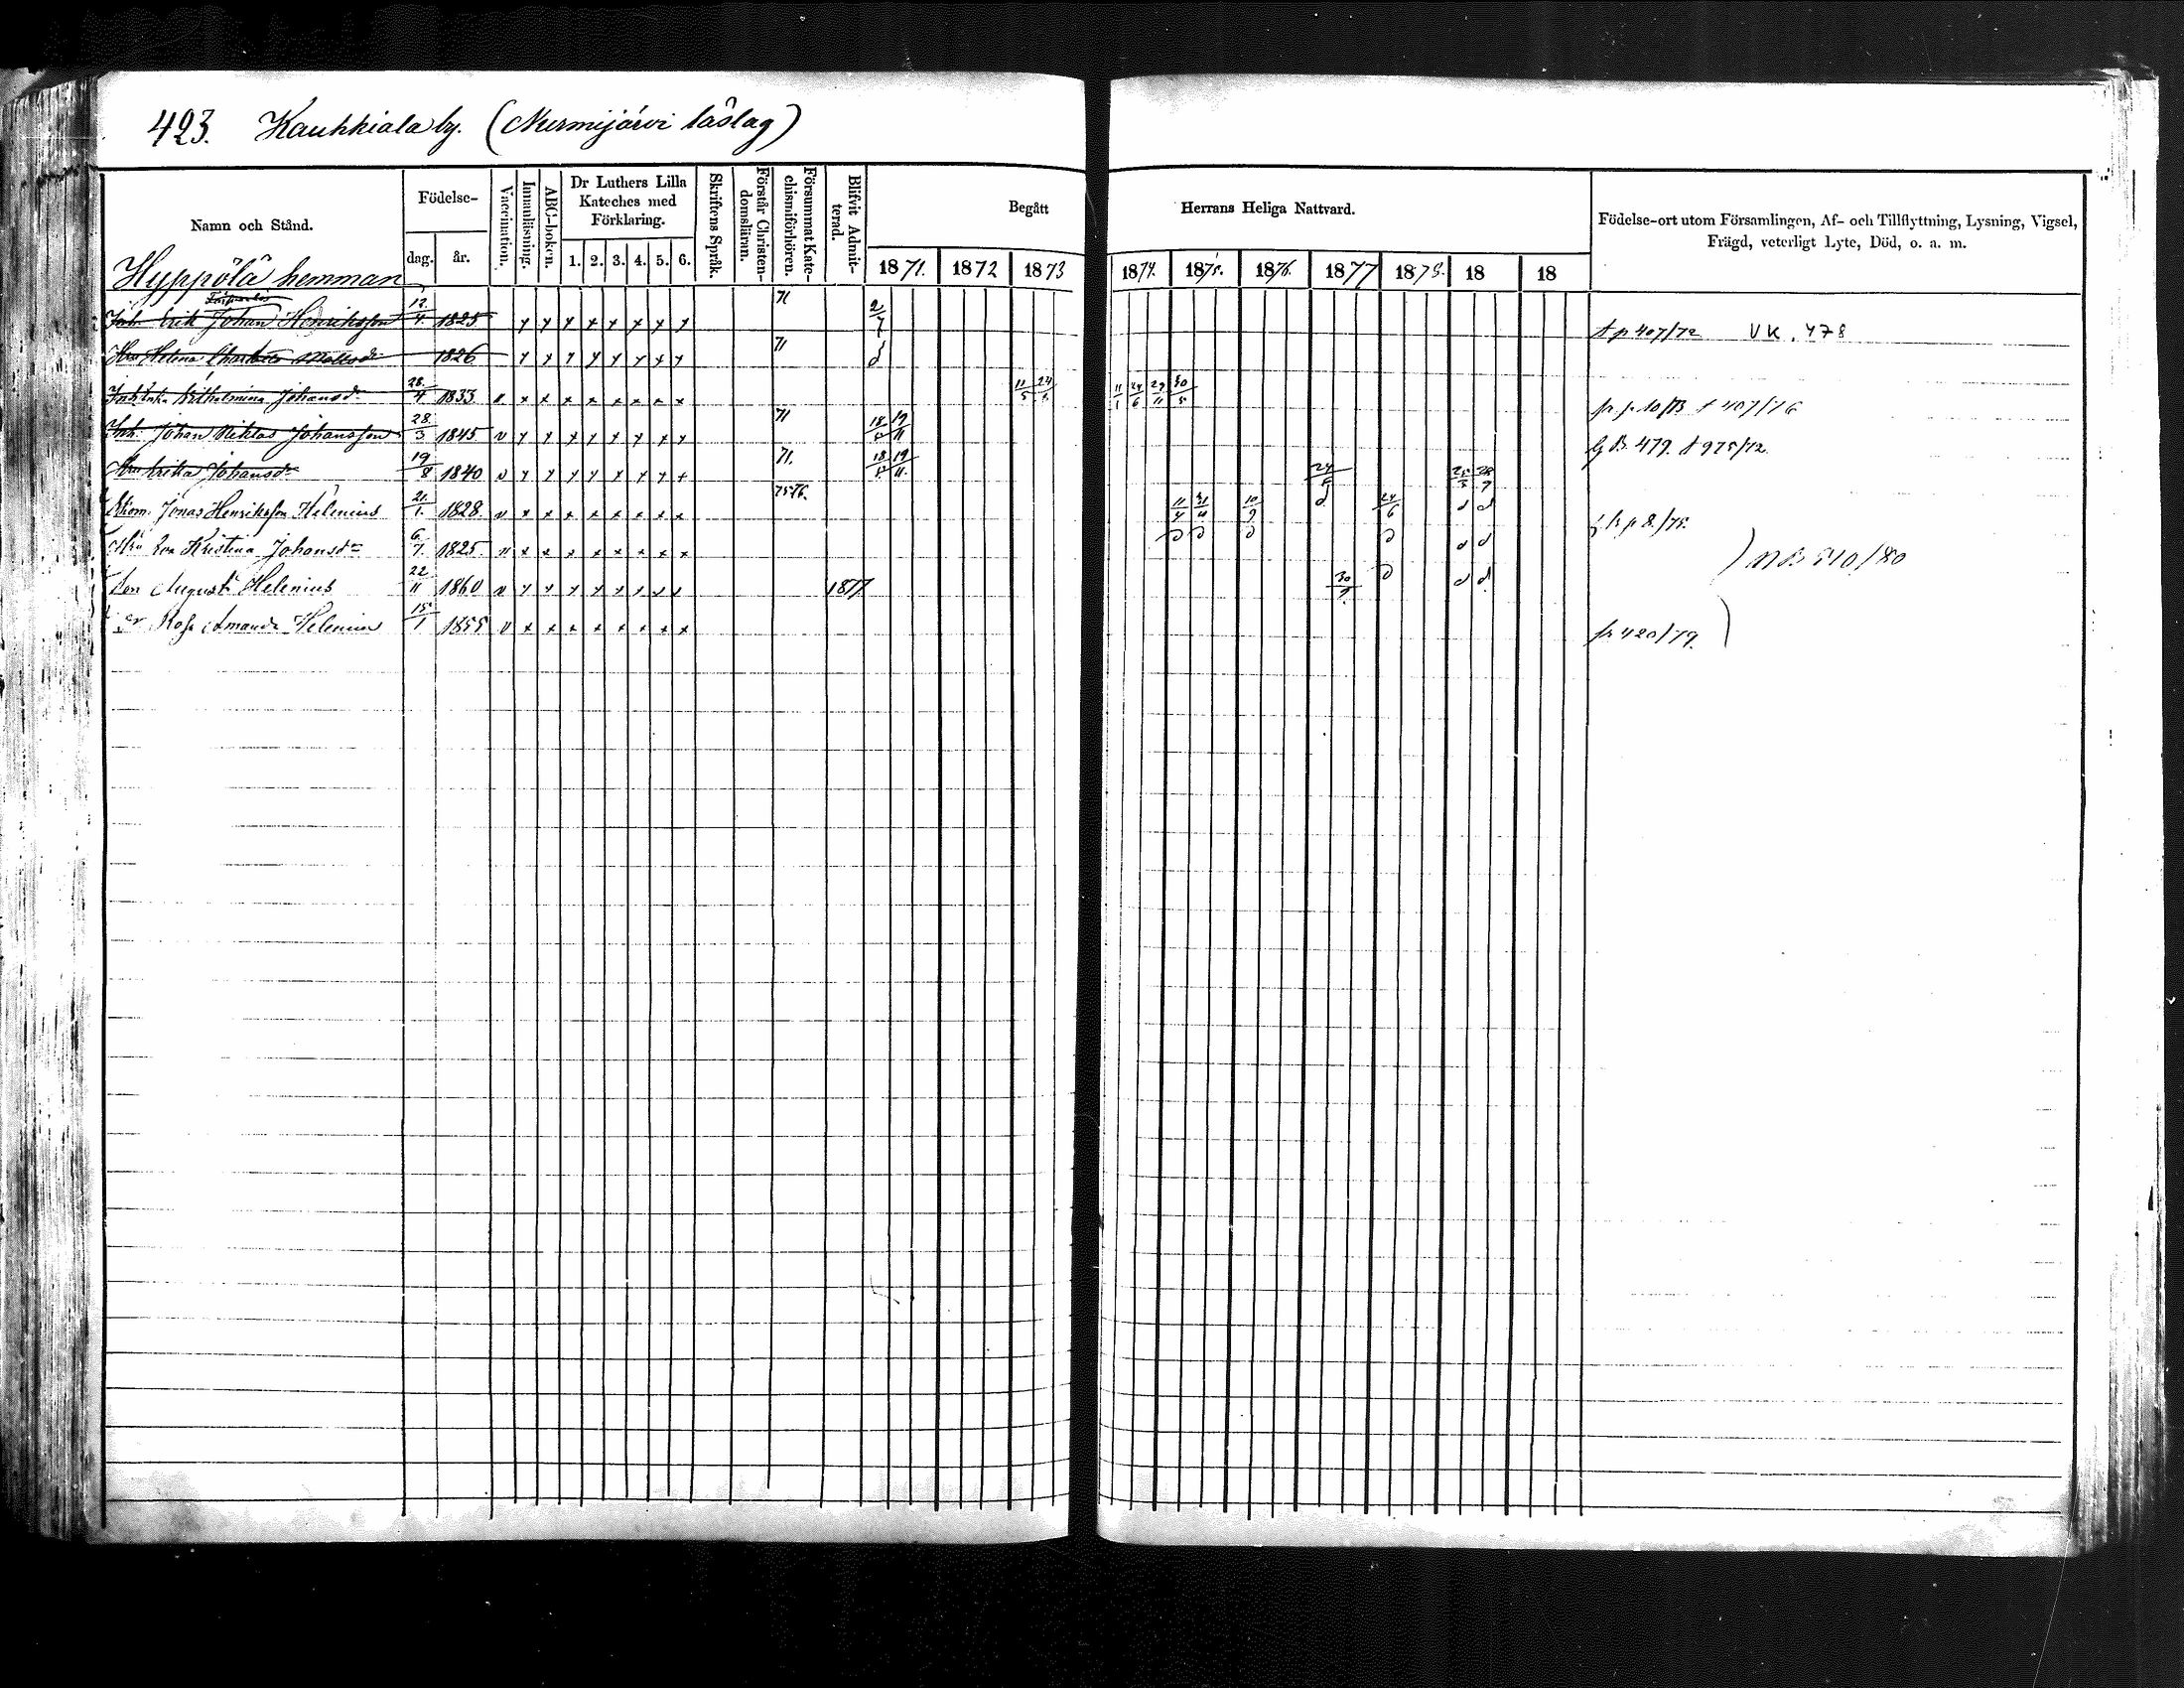 423. Kaukkiala by. (Nurmijärvi läslag)
Namn och Stånd. Födelse- Vaccination. Innanläsning. ABC-boken. Dr Luthers Lilla Kateches med Förklaring. Skriftens Språk. Förstår Christen-domsläran. Försummat Kate-chismiförhören. Blifvit Admit-terad. Begått Herrans Heliga Nattvard. Födelse-ort utom Församlingen, Af- och Tillflyttning, Lysning, Vigsel, Frägd, veterligt Lyte, Död, o. a. m.
dag. år. 1. 2. 3. 4. 5. 6. 1871. 1872 1873 1874. 1875. 1876. 1877 1878. 18 18
Hyppölä hemman
Inh. Erik Johan Henriksson 12/4 1825 y y y y y y y y 71 2/7 t p 407/72 VK. 478
Hu Helena Mattsdr 1826 y y y y y y y y 71 d
Wilhelmina Johansd 28./4 1833 v x x x x x x x x 11/5 24/5 11/1 24/6 29/11 30/5 fr p 10/73 t 407/76
Inh. Johan Niklas Johansson 28/3 1845 v y y y y y y y y 71 18/5 19/11 G B. 479. t 975/72
Hu Erika Johansdr 19/8 1840 v y y y y y y y x 71. 18/5 19/11. 24/5 25/5 28/7
Jonas Henriksson Helenius 21./1. 1828 v x x x x x x x x 75 76. 11/4 21/11 10/9 d 24/6 d d fr p 8./75.
Hu Eva Kristina Johansdr 6/7. 1825. v x x x x x x x x d d d d d d ) NB 510/80
Son August Helenius 22/11 1860 v y y y y y y y y 1877 30/9. d d d
Rosa Amanda Helenius 15/1 1855 v x x x x x x x x fr 420/79. )